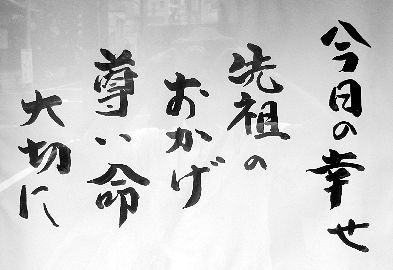 今日の幸せ
先祖の
おかげ
尊い命
大切に